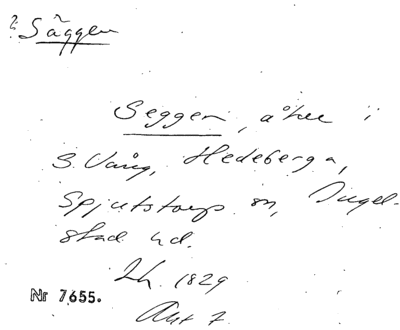 ? Säggen
Seggen, åker i
S. Vång, Hedeberga,
Spjutstorp sn, Ingel-
stad hd.
Lh. 1829
Akt 7
Nr 7655.